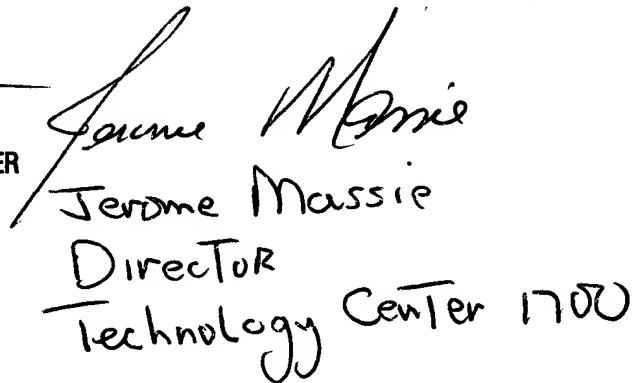 Jerome Massie
ER
Jerome Massie
DirecToR
Technology CenTer 1700